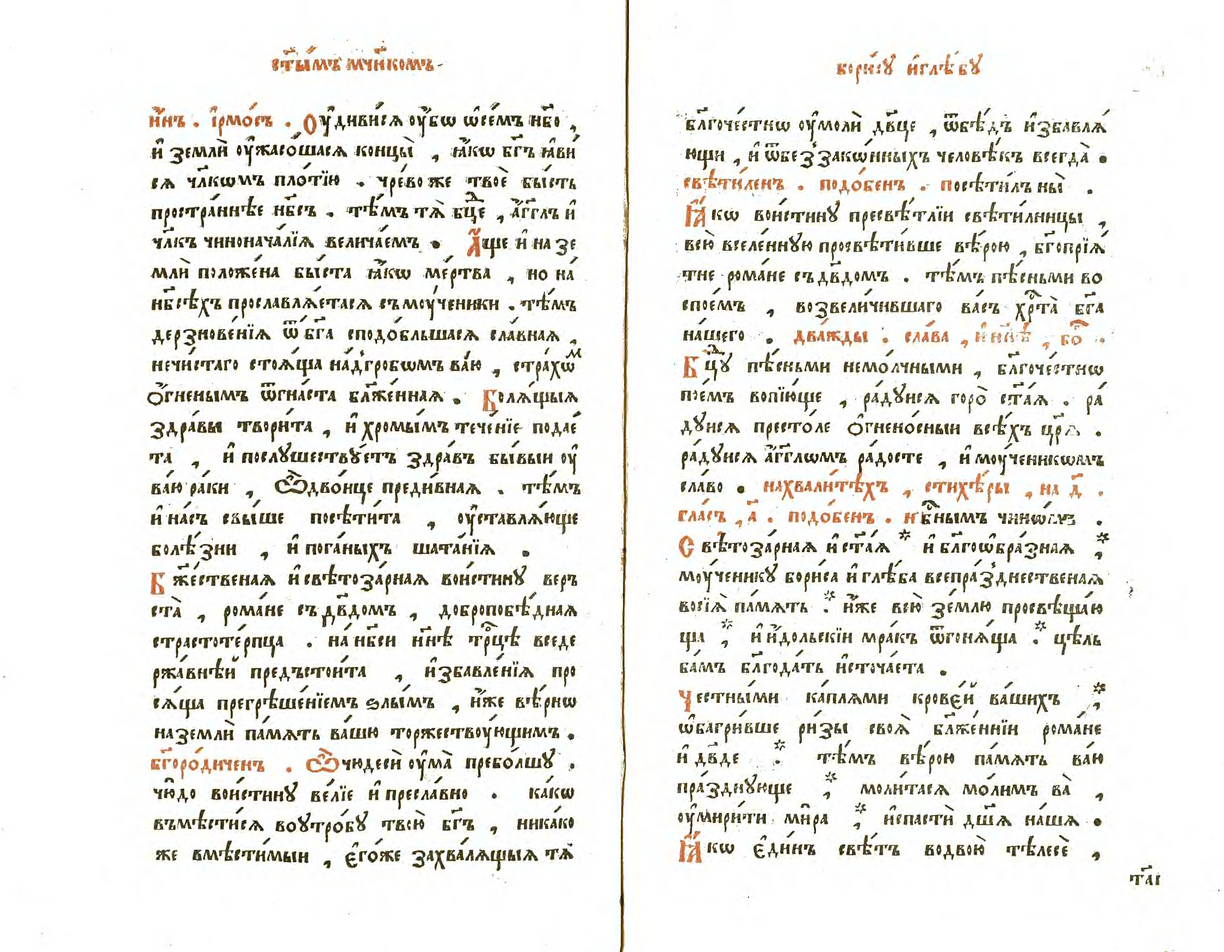 ст҃ы́мъ мч҃нкомъ
нн҃ъ . і҆рмо́съ . Оу҆диви́сѧ оу҆́бѡ ѡ҆се́мъ нб҃о ,
и҆ землѝ оу҆жасо́шасѧ концы̀ , ꙗ҆́кѡ бг҃ъ ꙗ҆ви́
сѧ чл҃кѡмъ пло́тїю . чре́во же твоѐ бы́сть
простра́ннѣе нб҃съ . тѣ́мъ тѧ̀ бц҃де , а҆́гг҃лъ и҆
чл҃къ чинонача́лїѧ велича́емъ . А҆́ще и҆ на зе
млѝ положе́на бы́ста ꙗ҆́кѡ ме́ртва , но на́
нб҃сѣхъ прославлѧ́етасѧ съ моу́ченики . тѣ́мъ
дерзнове́нїѧ ѿ бг҃а сподо́бльшасѧ сла́внаѧ ,
нечи́стаго стоѧ́ща над̾гро́бѡмъ ва́ю , стра́хѡм
о҆́гненымъ ѿгна́ста бл҃же́ннаѧ . Болѧ́щыѧ
здра́вы твори́та , и҆ хромы́мъ тече́нїе подае́
та , и҆ послꙋ́шествꙋетъ здра́въ бы́выи оу҆
ва́ю ра́ки , Ѽ дво́ице преди́внаѧ . тѣ́мъ
и҆ на́съ свы́ше посѣти́та , оу҆ставлѧ́юще
болѣ́зни , и҆ пога́ныхъ шата́нїѧ .
Бж҃ественаѧ и҆ свѣтоза́рнаѧ вои́стинꙋ веръ
ста̀ , рома́не съ дв҃домъ , доброповѣ́днаѧ
страстоте́рпца . на нб҃си нн҃ѣ трⷪ҇цѣ вседе
ржа́внѣй предъстои́та , и҆збавле́нїѧ про
сѧ́ща прегрѣше́нїемъ ѕлы́мъ , и҆́же вѣ́рнѡ
на землѝ па́мѧть ва́шю торжествꙋ́ющимъ .
бг҃оро́диченъ . Ѽ чюдесѝ оу҆ма̀ прево́лшꙋ .
чю́до вои́стинꙋ ве́лїе и҆ пресла́вно . ка́кѡ
въмѣсти́сѧ во оутро́бꙋ твою̀ бг҃ъ , ника́ко
же вмѣсти́мыи , є҆го́же захвалѧ́щыѧ тѧ̀
бори́сꙋ и҆ глѣ́бꙋ
бл҃гоче́стнѡ оу҆молѝ дв҃це , ѿбѣ́дъ и҆збавлѧ́
ющи , и҆ ѿбез̾зако́нныхъ человѣ́къ всегда̀ .
свѣти́ленъ . подо́бенъ . посѣти́лъ ны̀ .
Ꙗ҆́кѡ вои́стинꙋ пресвѣ́тлїи свѣти́лницы ,
всю̀ вселе́ннꙋю просвѣти́вше вѣ́рою , бг҃опрїѧ́
тне рома́не съ дв҃домъ . тѣ́мъ пѣ́сньми во
спое́мъ , возвели́чившаго ва́съ хрⷭ҇та̀ бг҃а
на́шего . два́жды . сла́ва , и҆ нн҃ѣ , бо҃ .
Бц҃ꙋ пѣ́сньми немо́лчными , бл҃гоче́стнѡ
пое́мъ вопїю́ще , ра́дꙋисѧ горо̀ ст҃а́ѧ . ра́
дꙋисѧ престо́ле о҆гненосныи всѣ́хъ цр҃ѧ .
ра́дꙋисѧ а҆́гг҃лѡмъ ра́досте , и҆ моу́ченикѡмъ
сла́во . на хвали́тѣхъ , стихѣ́ры , на д҃ .
гла́съ , а҃ . подо́бенъ . нбⷭ҇нымъ чинѡ́мъ .
Свѣтоза́рнаѧ и҆ ст҃а́ѧ * и҆ бл҃гоѡ҆бра́знаѧ , *
моу́ченикꙋ бори́са и҆ глѣ́ба всепра́з̾днественаѧ
восїѧ̀ па́мѧть * и҆́же всю̀ зе́млю просвѣща́ю
ща , * и҆ и҆́дольскїи мра́къ ѿгонѧ́ща . * цѣ́ль
ба́мъ бл҃года́ть и҆сточа́ета .
Честны́ми ка́плѧми крове́й ва́шихъ , *
ѡ҆багри́вше ри́зы своѧ̀ бл҃же́ннїи рома́не
и҆ дв҃де . * тѣ́мъ вѣ́рою па́мѧть ва́ю
пра́зднꙋюще , * моли́тасѧ мо́лимъ ва̀ ,
оу҆мири́ти ми́ра , * и҆ спасти́ дш҃ѧ на́шѧ .
Ꙗ҆́кѡ є҆ди́нъ свѣ́тъ во двою̀ тѣлесѐ ,